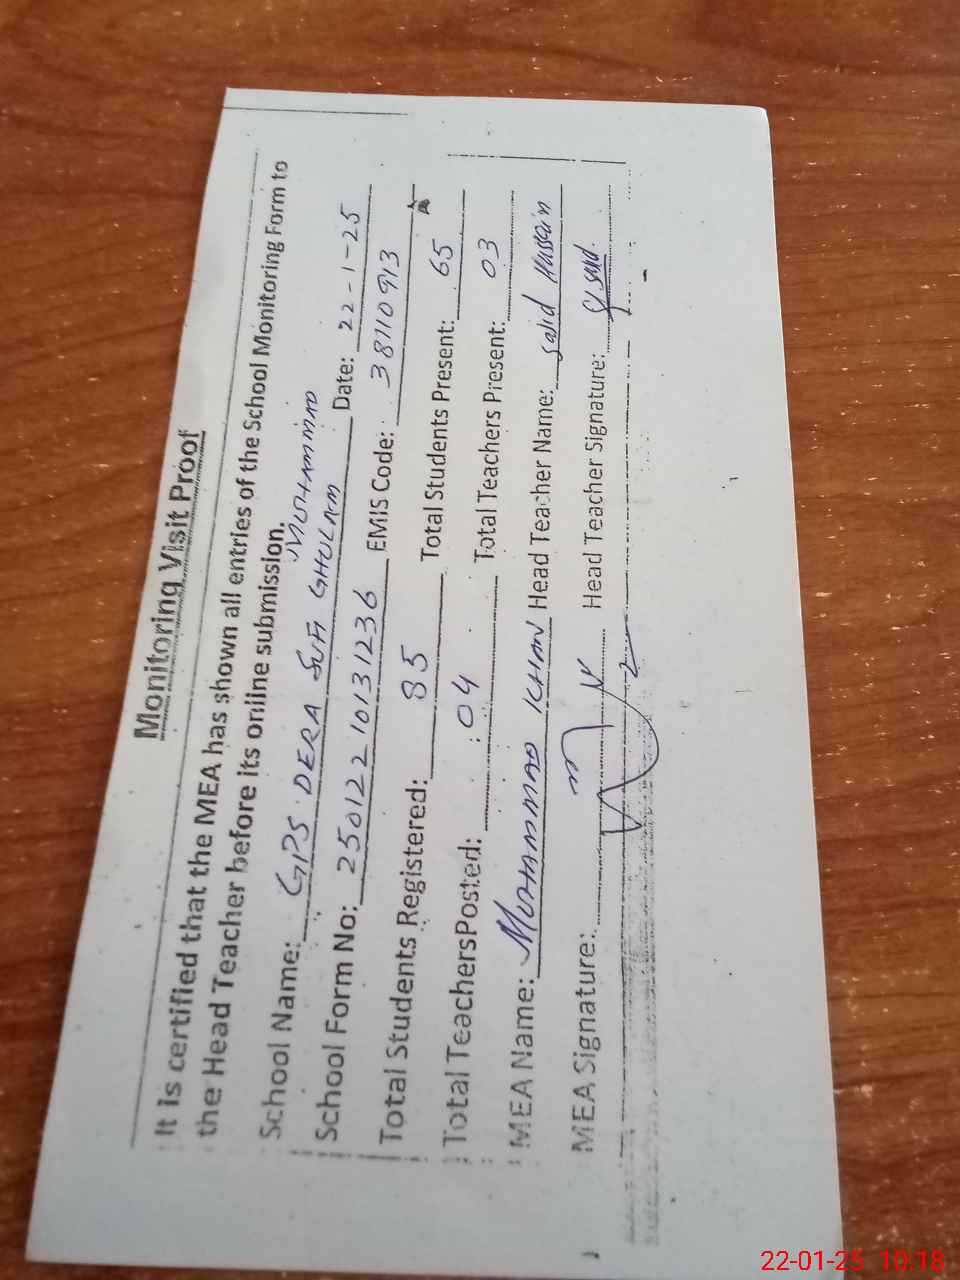 Monitoring Visit Proof
It is certified that the MEA has shown all entries of the School Monitoring Form to
the Head Teacher before its online submission.
School Name: GPS DERA SUFI GHULAM MUHAMMAD Date: 22-1-25
School Form No: 25012210131236 EMIS Code: 38110913
Total Students Registered: 85 Total Students Present: 65
Total TeachersPosted: 04 Total Teachers Present: 03
MEA Name: MUHAMMAD KHAN Head Teacher Name: Sajid Hussain
MEA Signature: Head Teacher Signature:
22-01-25 10:18